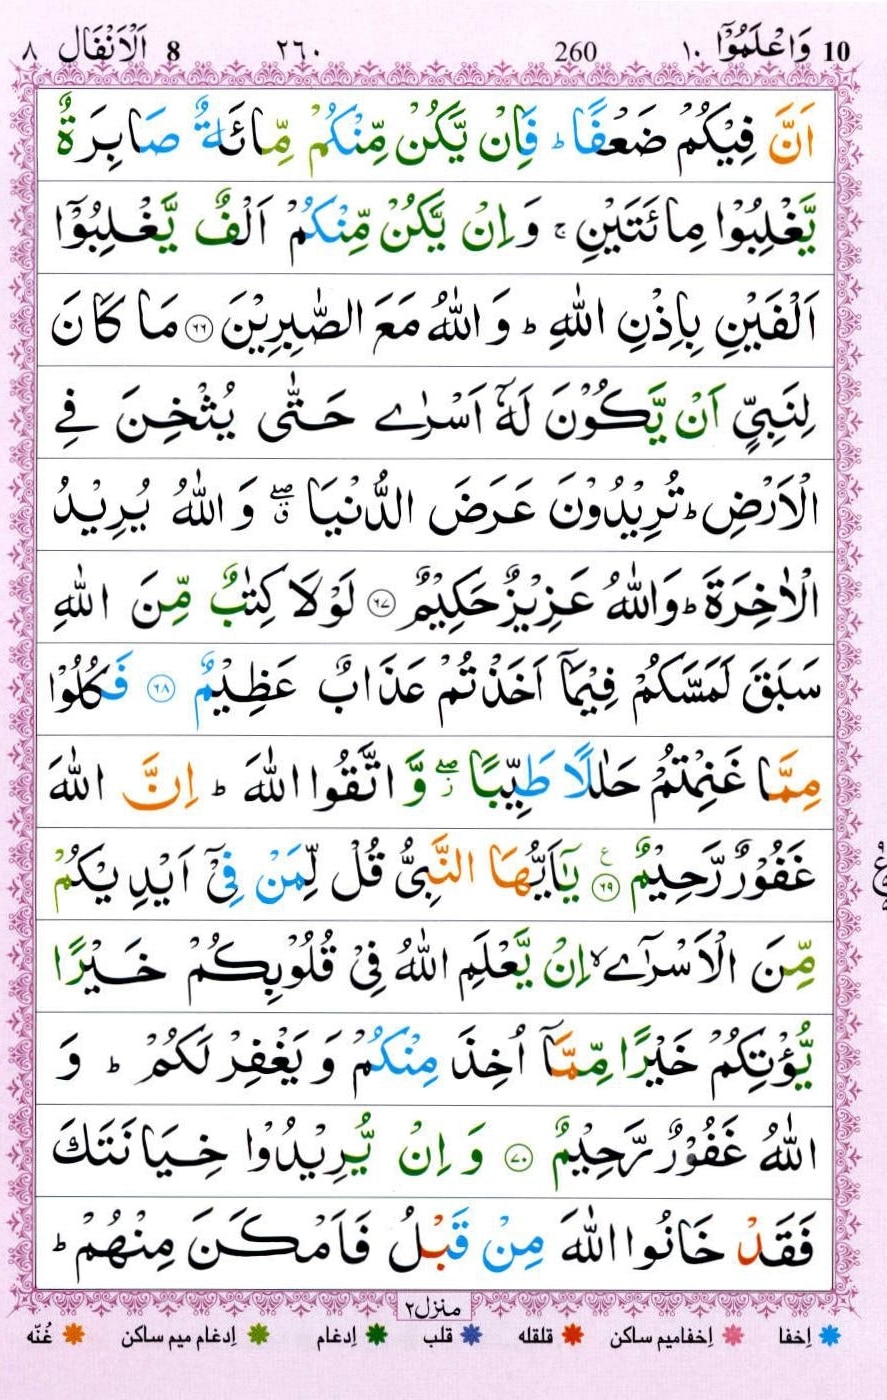 10 وَاعْلَمُوْۤا ١٠ 260 ٢٦٠ 8 اَلْاَنْفَال ٨
اَنَّ فِيْكُمْ ضَعْفًا ؕ فَاِنْ يَّكُنْ مِّنْكُمْ مِّائَةٌ صَابِرَةٌ
يَّغْلِبُوْا مِائَتَيْنِ ۚ وَاِنْ يَّكُنْ مِّنْكُمْ اَلْفٌ يَّغْلِبُوْۤا
اَلْفَيْنِ بِاِذْنِ اللّٰهِ ؕ وَاللّٰهُ مَعَ الصّٰبِرِيْنَ ﴿٦٦﴾ مَا كَانَ
لِنَبِيٍّ اَنْ يَّكُوْنَ لَهٗۤ اَسْرٰى حَتّٰى يُثْخِنَ فِي
الْاَرْضِ ؕ تُرِيْدُوْنَ عَرَضَ الدُّنْيَا ۖق وَاللّٰهُ يُرِيْدُ
الْاٰخِرَةَ ؕ وَاللّٰهُ عَزِيْزٌ حَكِيْمٌ ﴿٦٧﴾ لَوْلَا كِتٰبٌ مِّنَ اللّٰهِ
سَبَقَ لَمَسَّكُمْ فِيْمَاۤ اَخَذْتُمْ عَذَابٌ عَظِيْمٌ ﴿٦٨﴾ فَكُلُوْا
مِمَّا غَنِمْتُمْ حَلٰلًا طَيِّبًا ۖز وَّاتَّقُوا اللّٰهَ ؕ اِنَّ اللّٰهَ
غَفُوْرٌ رَّحِيْمٌ ﴿٦٩﴾ ع يٰۤاَيُّهَا النَّبِيُّ قُلْ لِّمَنْ فِيْۤ اَيْدِيْكُمْ
مِّنَ الْاَسْرٰۤى ۙ اِنْ يَّعْلَمِ اللّٰهُ فِيْ قُلُوْبِكُمْ خَيْرًا
يُّؤْتِكُمْ خَيْرًا مِّمَّاۤ اُخِذَ مِنْكُمْ وَيَغْفِرْ لَكُمْ ؕ وَ
اللّٰهُ غَفُوْرٌ رَّحِيْمٌ ﴿٧٠﴾ وَاِنْ يُّرِيْدُوْا خِيَانَتَكَ
فَقَدْ خَانُوا اللّٰهَ مِنْ قَبْلُ فَاَمْكَنَ مِنْهُمْ ؕ
منزل ٢
اِخفا اِخفامیم ساکن قلقله قلب اِدغام اِدغام میم ساکن غُنّه